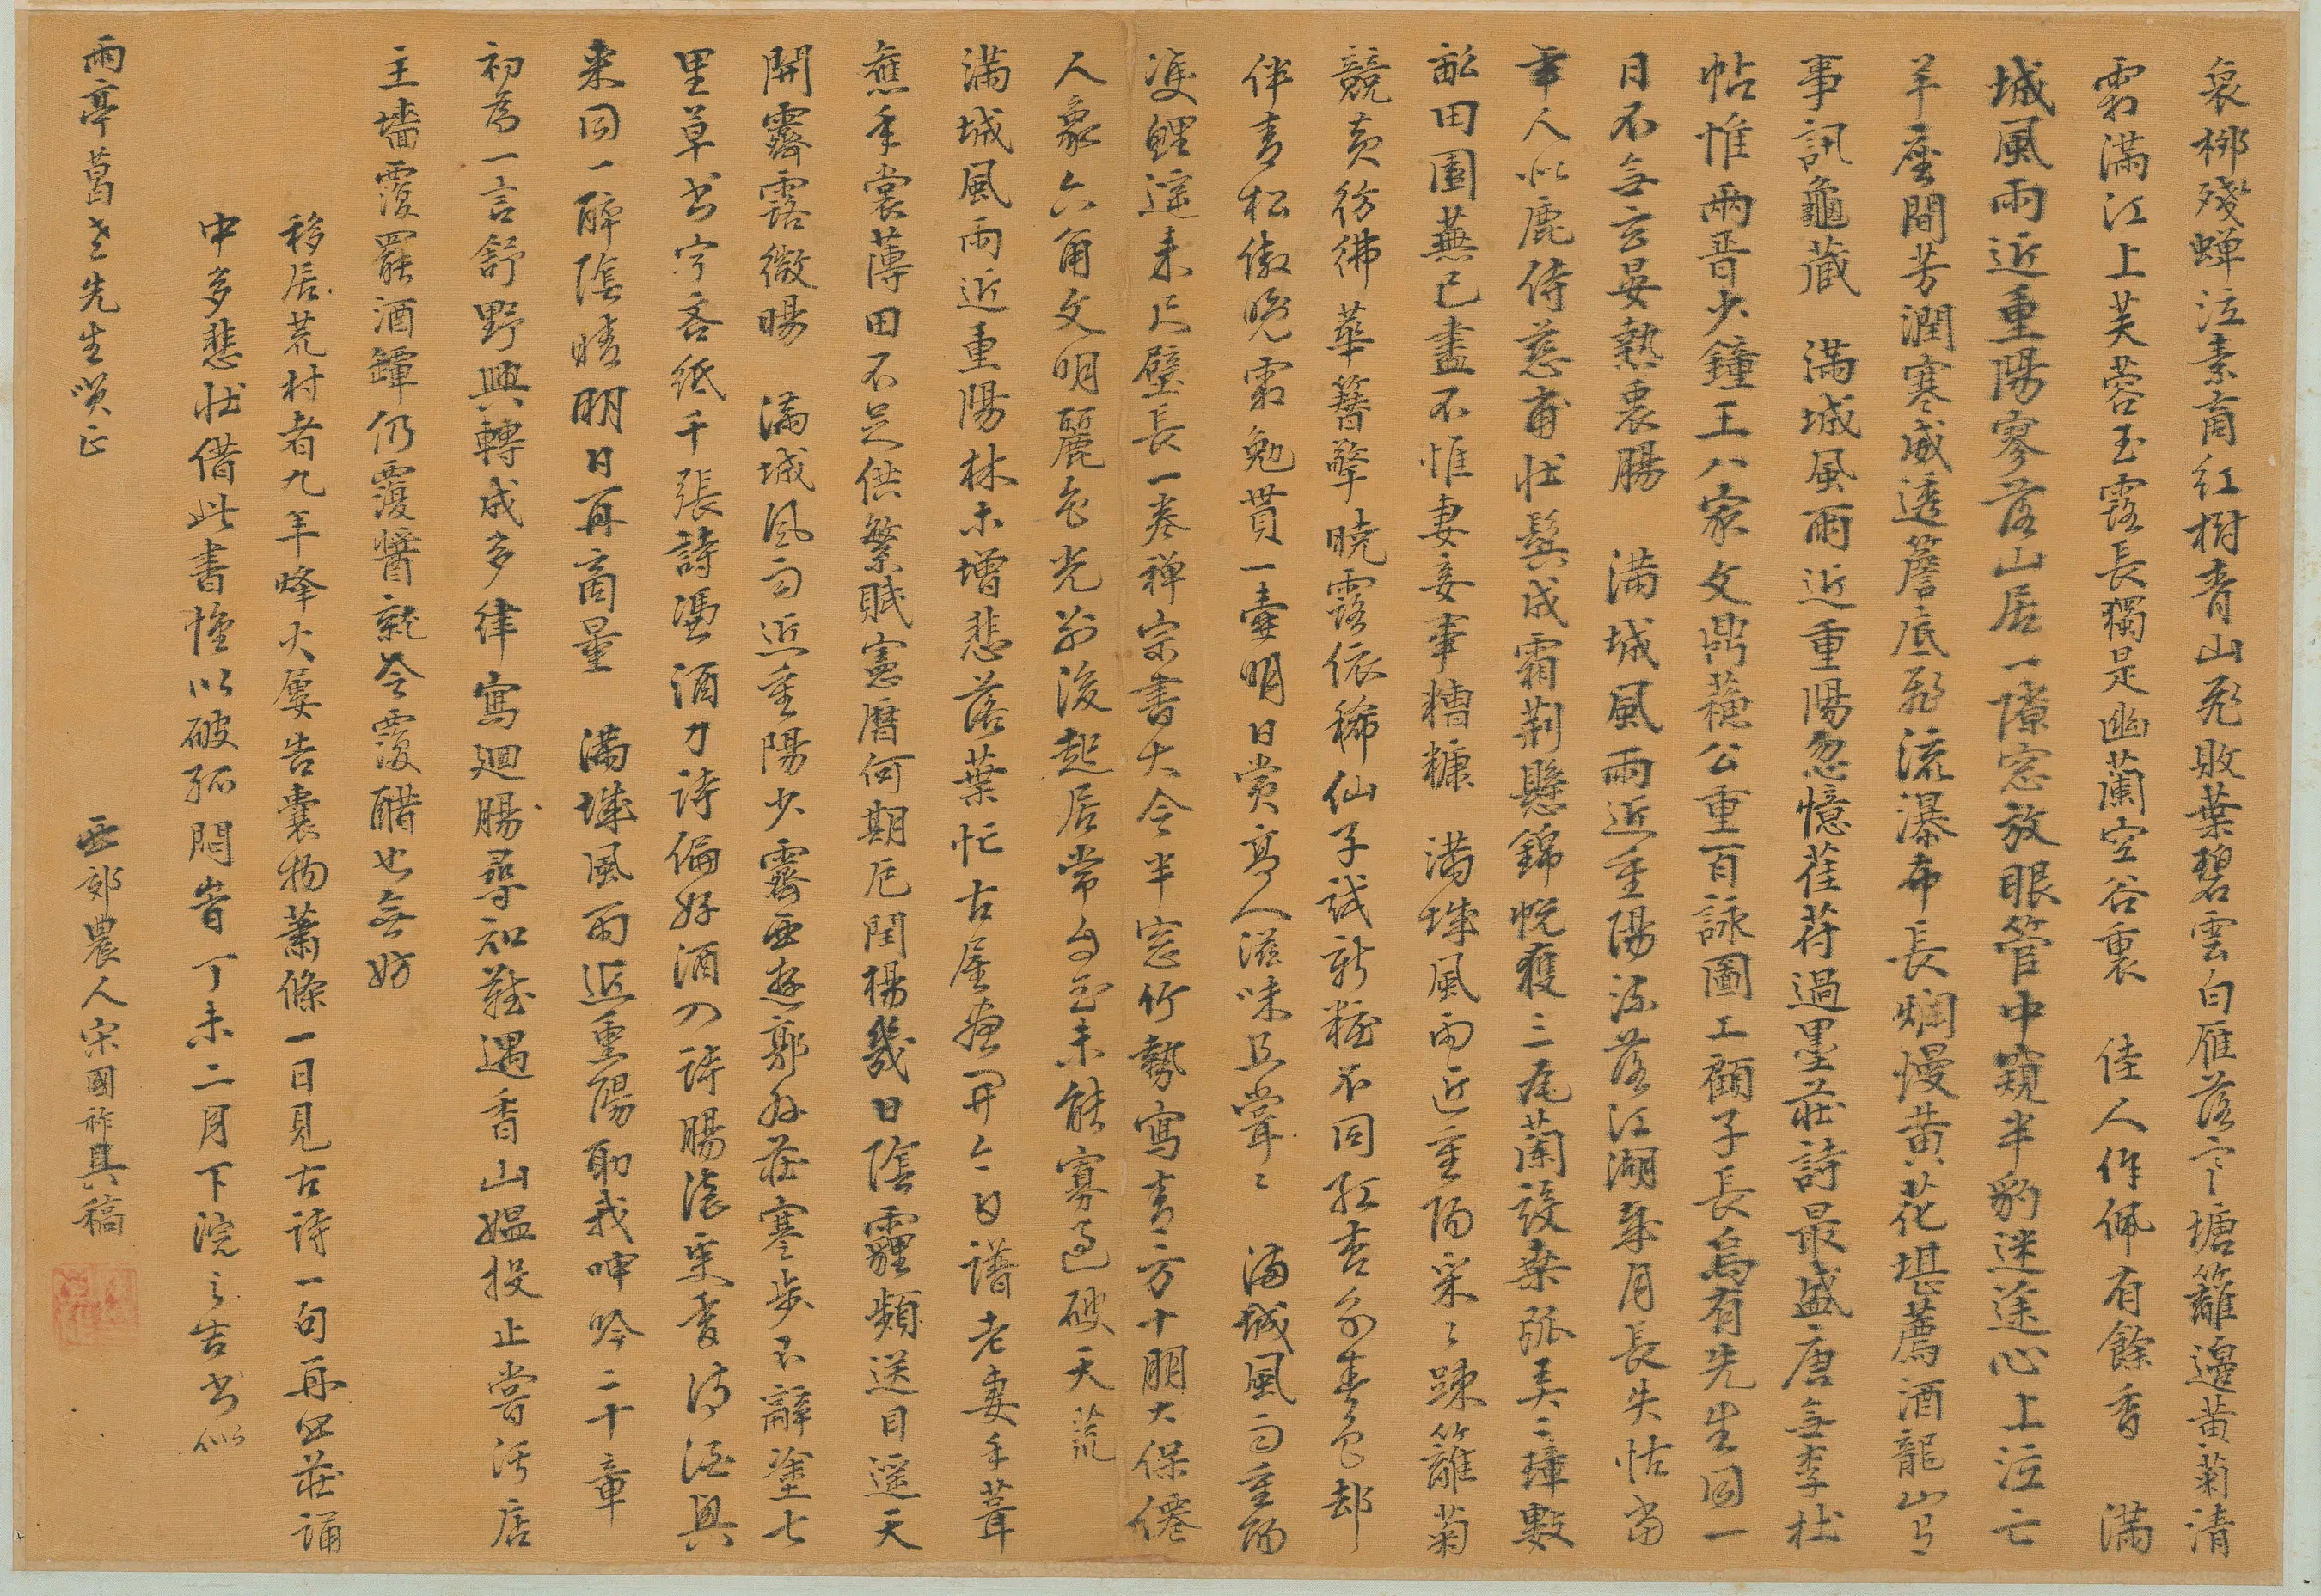 哀柳殘蟬泣素商紅樹青山飛敗葉碧雲白雁落寒塘籬邊黃菊清
霜滿江上芙蓉玉露長獨是幽蘭空谷裏 佳人作佩有餘香 滿
城風雨近重陽寥落山居一隙窓放眼管中窺半豹迷途心上泣亡
羊座間芳潤寒威透簷底飛流瀑布長爛慢黃花堪薦酒龍山
事訊龜藏 滿城風雨近重陽忽憶荏苻過墨莊詩最盛唐無李杜
帖惟兩晋少鐘王八家文鼎藐公重百詠圖工顧子長烏有先生同一
日不無云晏熱裏腸 滿城風雨近重陽流落江湖歲月長失怙當
年人似鹿侍慈甫壯鬓成霜荊懸錦帨獲三尾蘭設桒弧美二璋數
畝田園蕪已盡不惟妻妾事糟糠 滿城風雨近重陽采采踈籬菊
競黃彷彿華簪擎曉露依稀仙子試新粧不同紅杏爭春色却
伴青松傲晚霜勉貰一壷明日賞髙人滋味且嘗嘗 滿城風雨重陽
雙鯉遠來尺璧長一卷禅宗書大令半窓竹勢寫青方十朋大保僊
人象六甬文明麗色光前後起居常自在未能寡過破天荒
滿城風雨近重陽林木增悲落葉忙古屋應開今日譜老妻手葺
舊年裳薄田不足供繁賦憲曆何期厄閏楊幾日陰霾頻送目遥天
開霽露微暘 滿城風雨近重陽少霽西逰郭外莊寒步不辭塗七
里草書寧吝紙千張詩憑酒力詩偏好酒入詩腸滾更香詩酒與
來同一醉陰晴明日再商量 滿城風雨近重陽聊我呻吟二十章
初為一言舒野興轉成多律寫廻腸尋知難遇香山媼投止嘗汚店
主墻覆罷酒罈仍覆醬就令覆醋也無妨
移居荒村者九年烽火屢告囊物蕭條一日見古詩一句再四莊誦
中多悲壯借此書懷以破孤悶嵜丁未二月下浣之吉書似
雨亭葛老先生㗛正
西郊農人宋國祚具稿